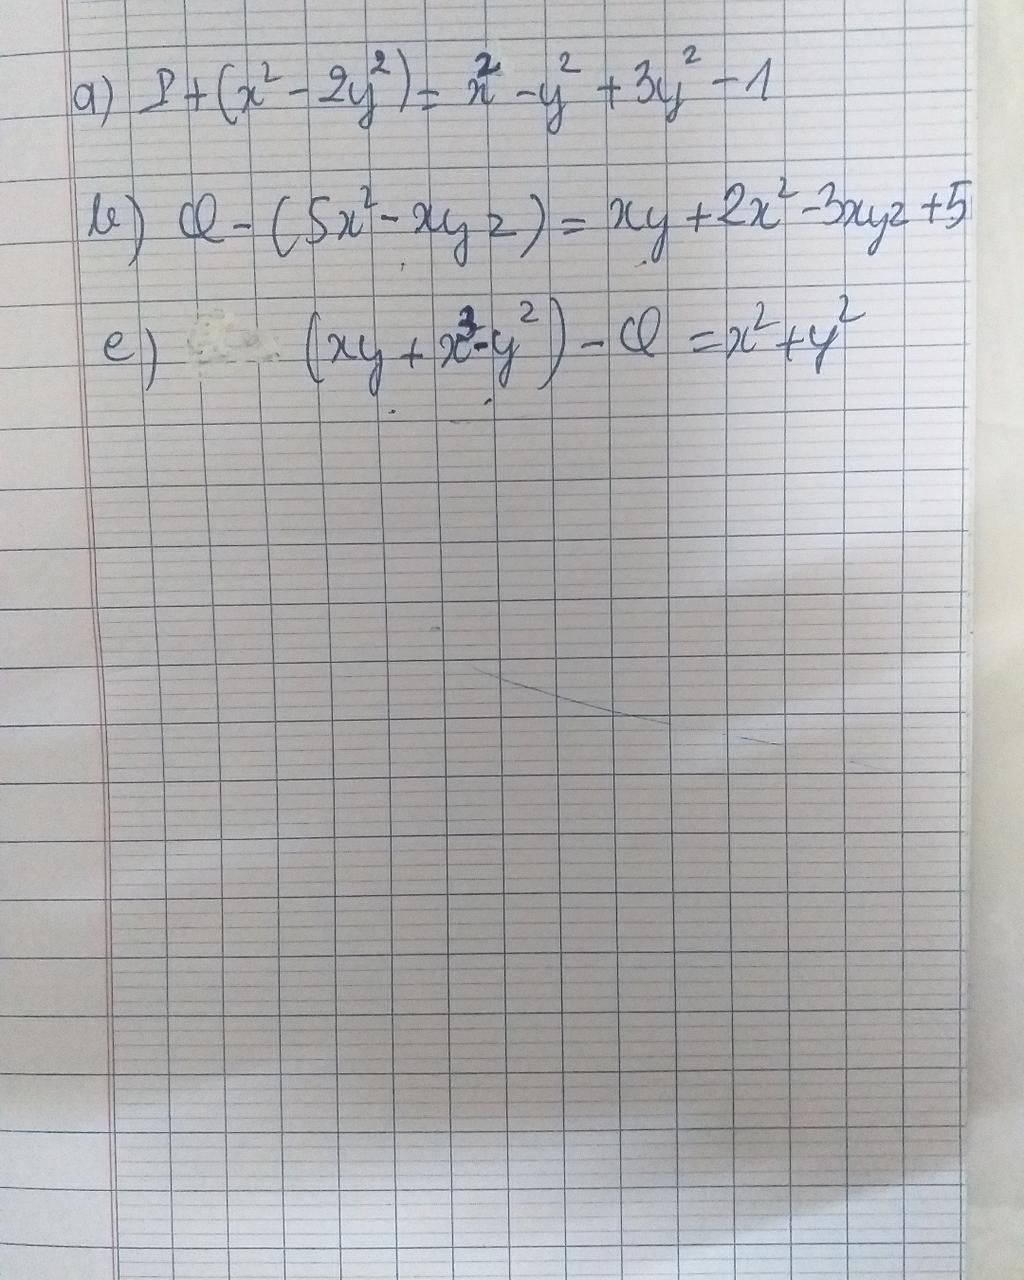 a) P + (x² - 2y²) = x² - y² + 3y² - 1
b) Q - (5x² - xyz) = xy + 2x² - 3xyz + 5
c) (xy + x³ - y²) - Q = x² + y²